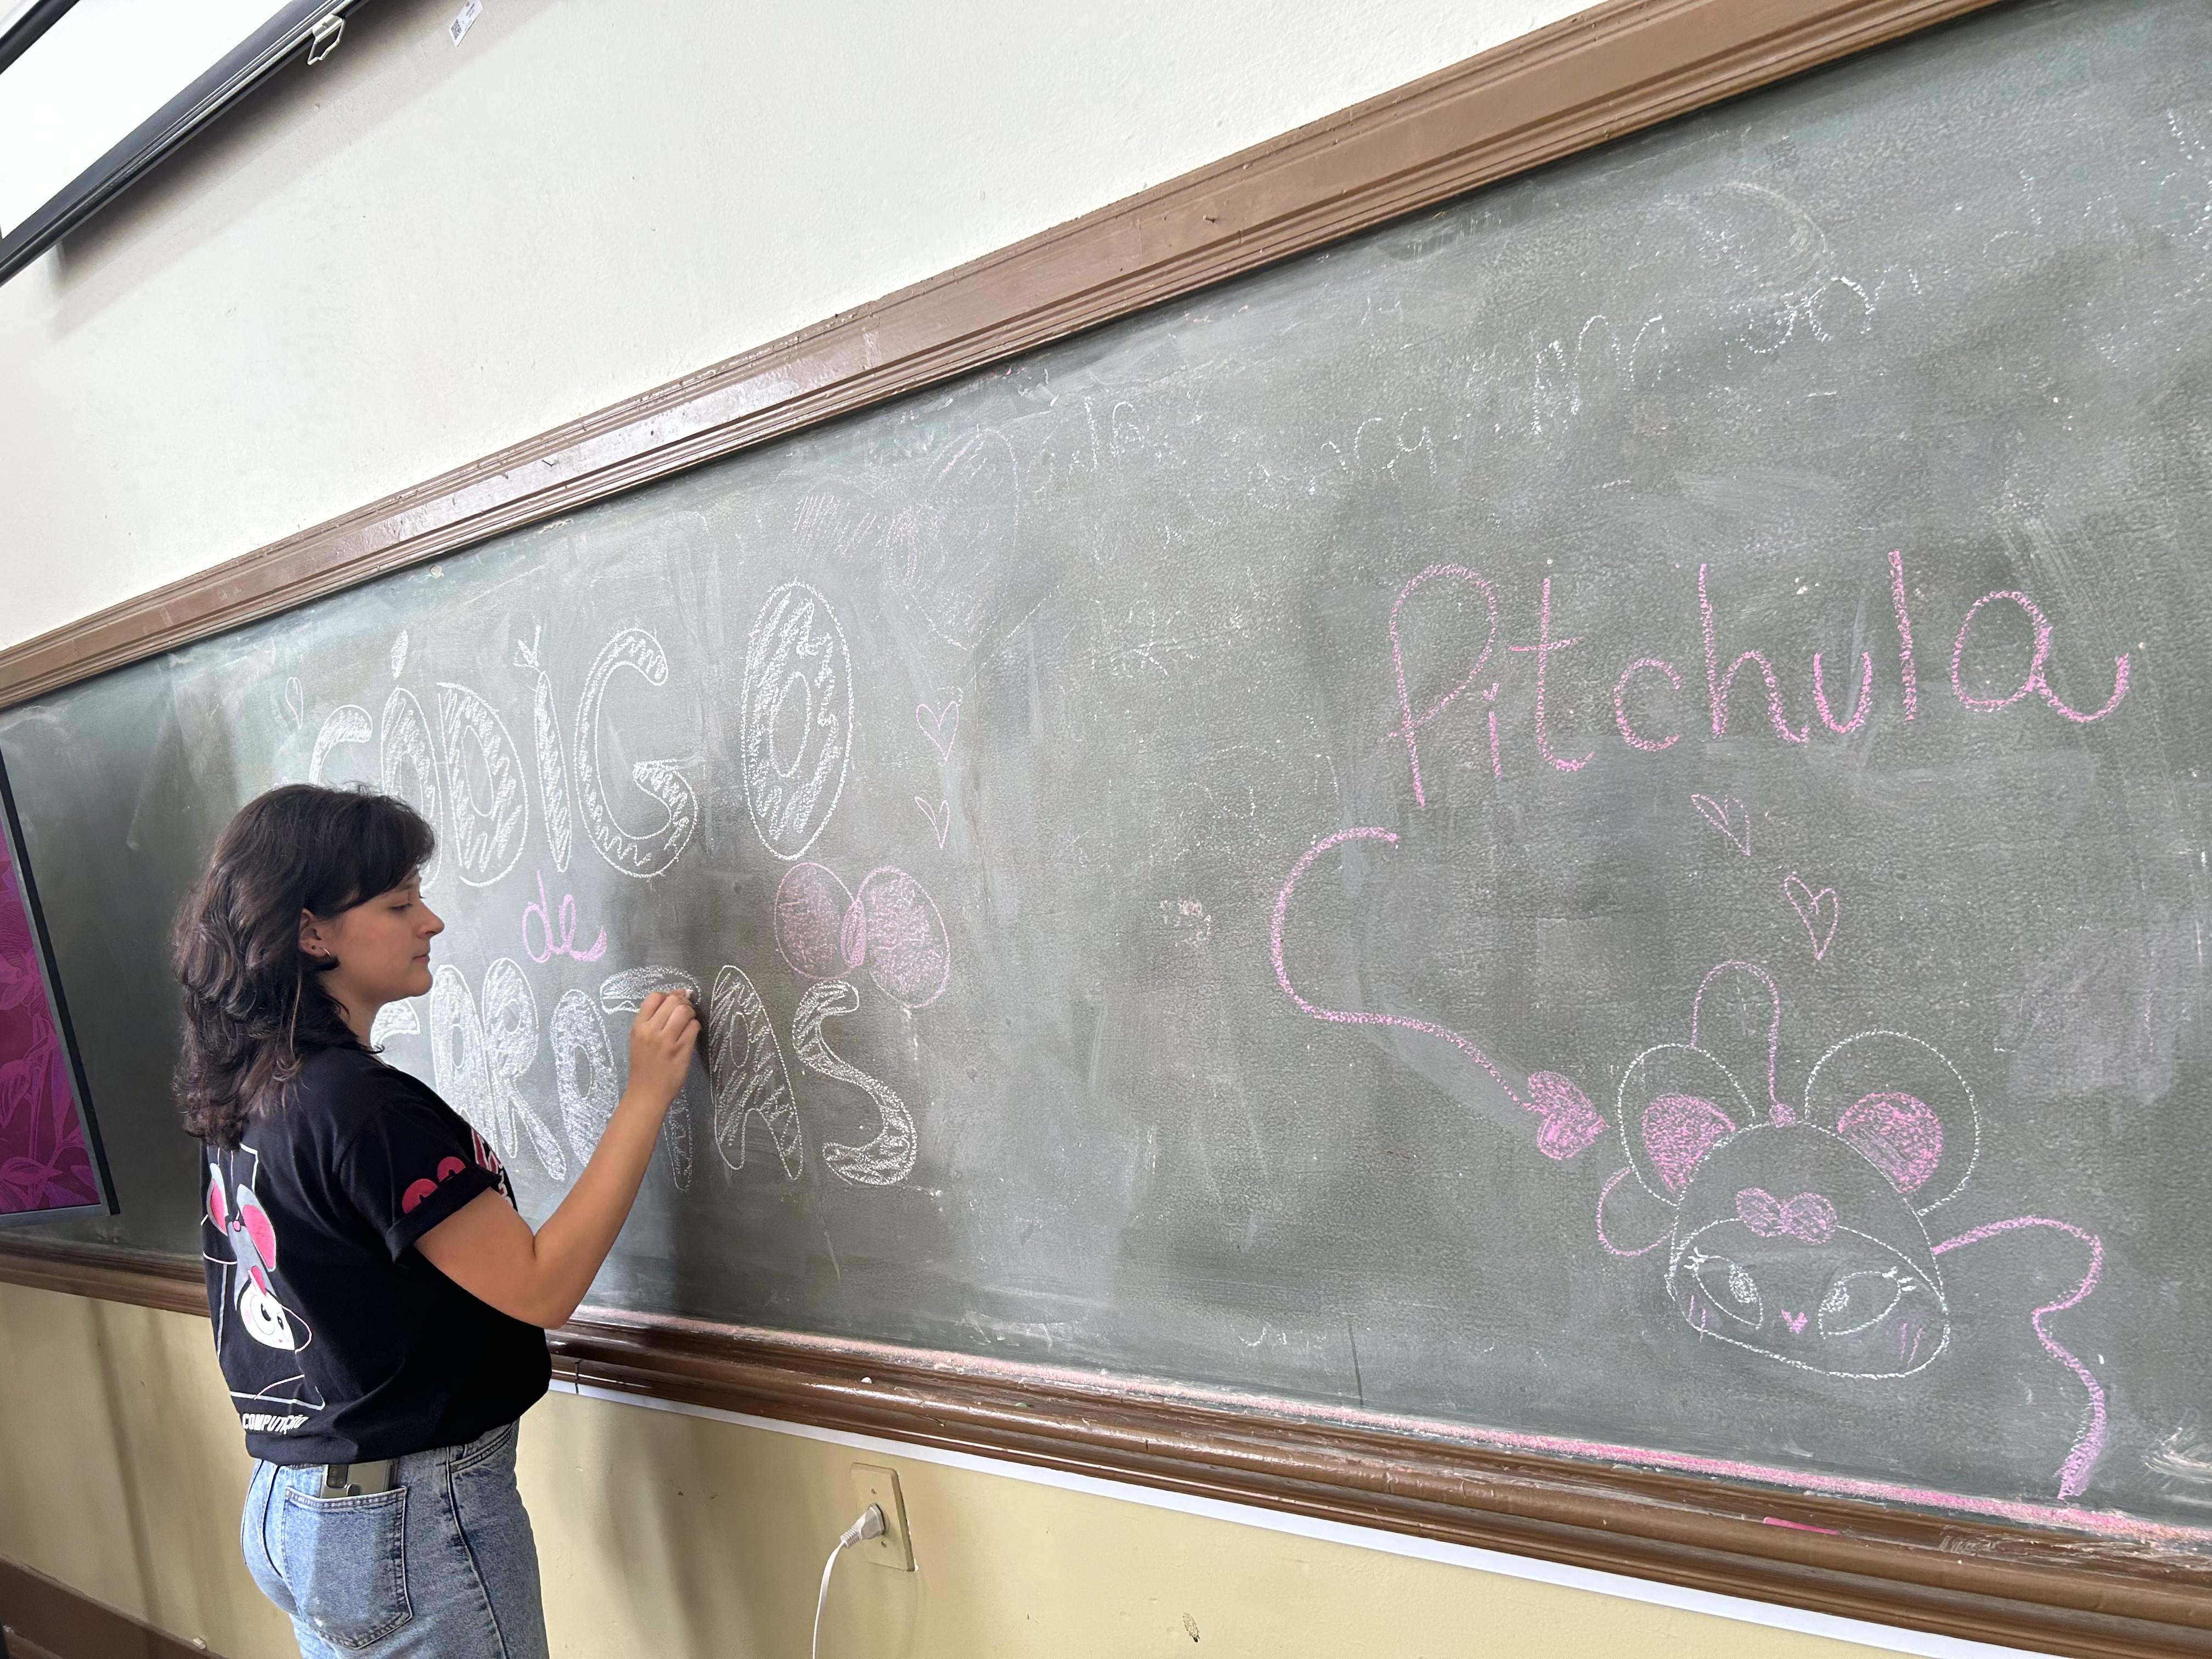 CÓDIGO
de
GAROTAS
Pitchula
COMPUTAÇÃO